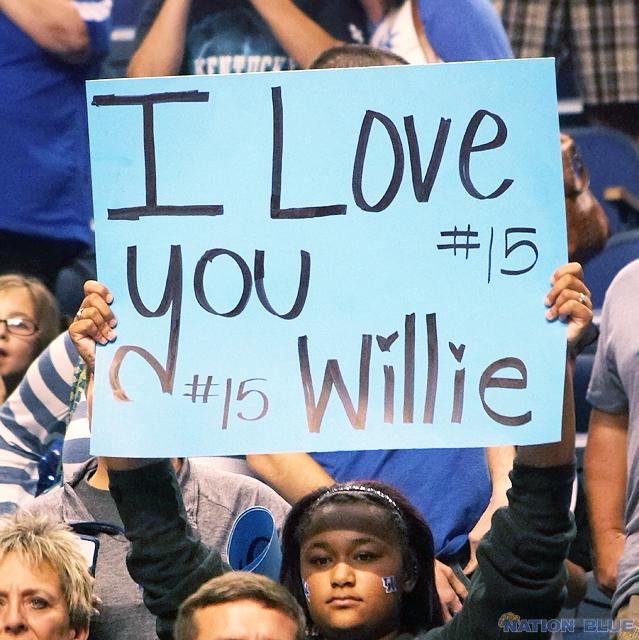 KENTUCKY
I Love
#15
you
#15 Willie
NATION BLUE